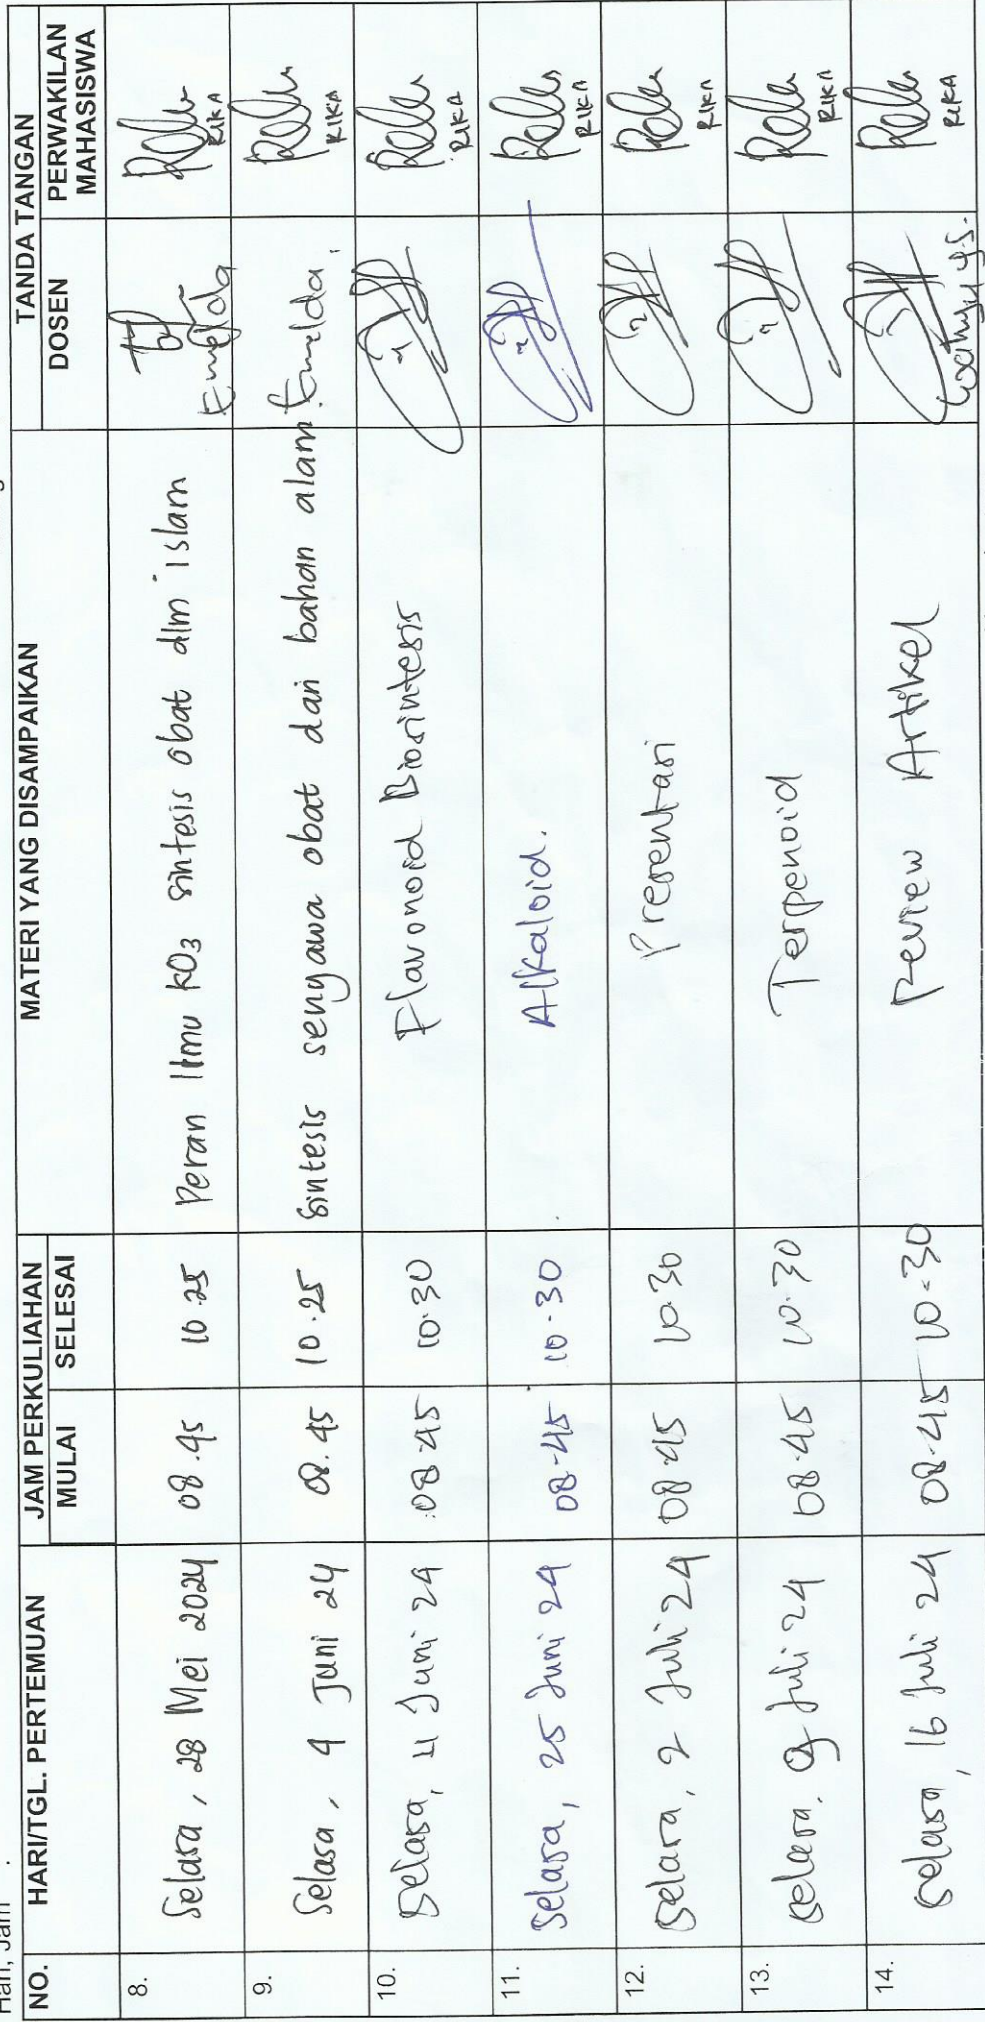 Hari, Jam
NO. HARI/TGL. PERTEMUAN JAM PERKULIAHAN MATERI YANG DISAMPAIKAN TANDA TANGAN
MULAI SELESAI DOSEN PERWAKILAN MAHASISWA
8. Selasa, 28 Mei 2024 08.45 10.25 Peran Ilmu KO3 sintesis obat dlm islam Emelda RIKA
9. Selasa, 4 Juni 24 08.45 10.25 Sintesis senyawa obat dari bahan alam Emelda. RIKA
10. Selasa, 11 Juni 24 08.45 10.30 Flavonoid Biosintesis RIKA
11. Selasa, 25 Juni 24 08.45 10.30 Alkaloid. RIKA
12. Selasa, 2 Juli 24 08.45 10.30 Presentasi RIKA
13. Selasa, 9 Juli 24 08.45 10.30 Terpenoid RIKA
14. Selasa, 16 Juli 24 08.45 10.30 Review Artikel Wahyu Y.S. RIKA